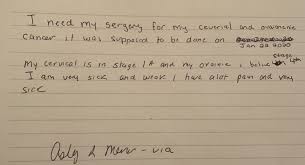 I need my sergery for my cevericl and overanic
cancer it was supposed to be done on
Jan 22 2020
My cervical is in stage 1A and my ovarie, I belive stage 4th
I am very sick and weak I have alot pain and very
sick